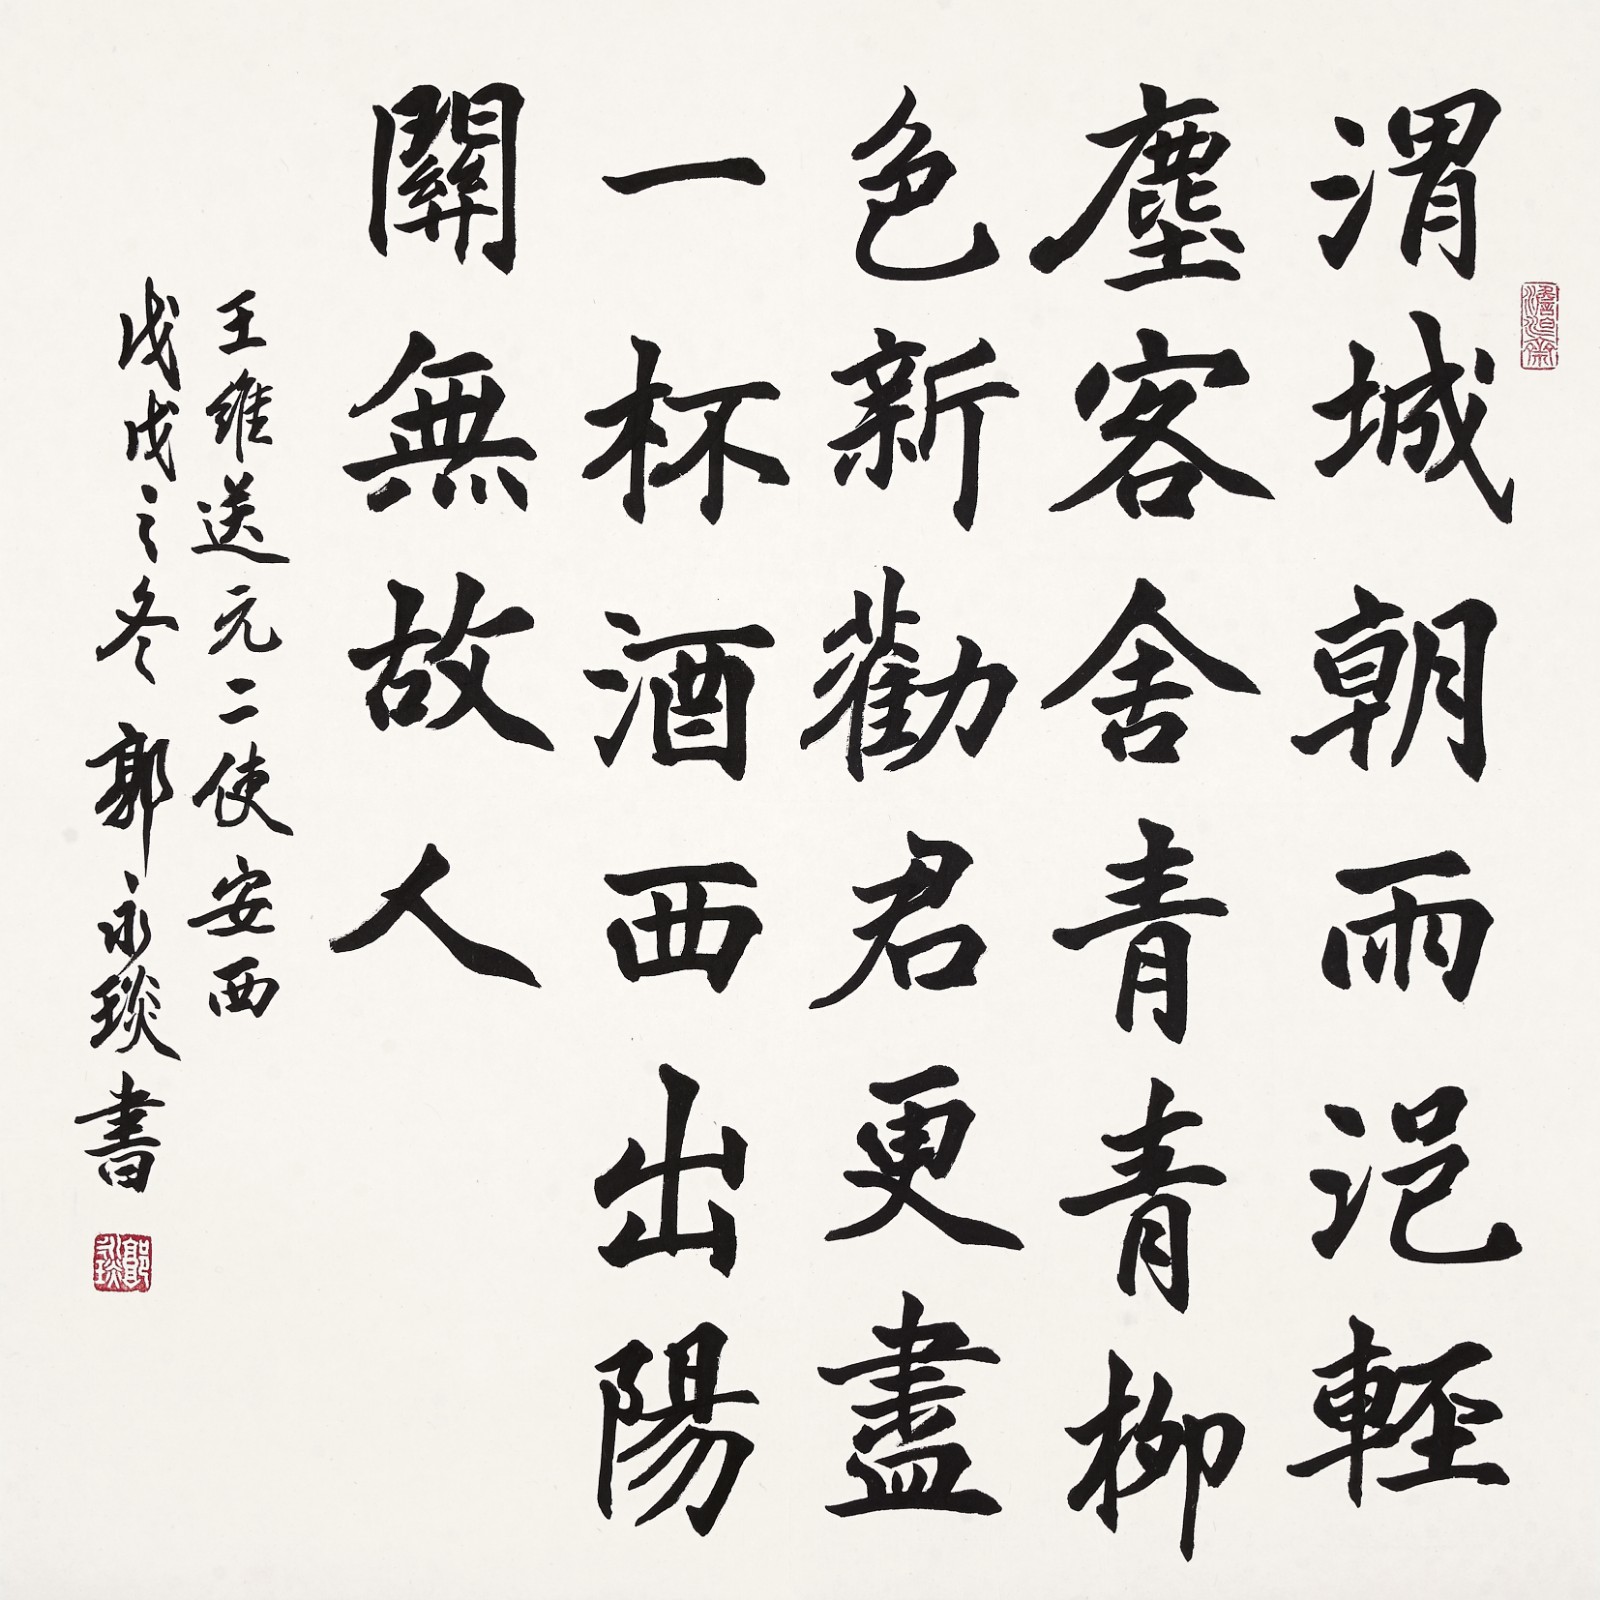 渭城朝雨浥輕
塵客舍青青柳
色新勸君更盡
一杯酒西出陽
關無故人
王維送元二使安西
戊戌之冬郭永琰書
郭永琰